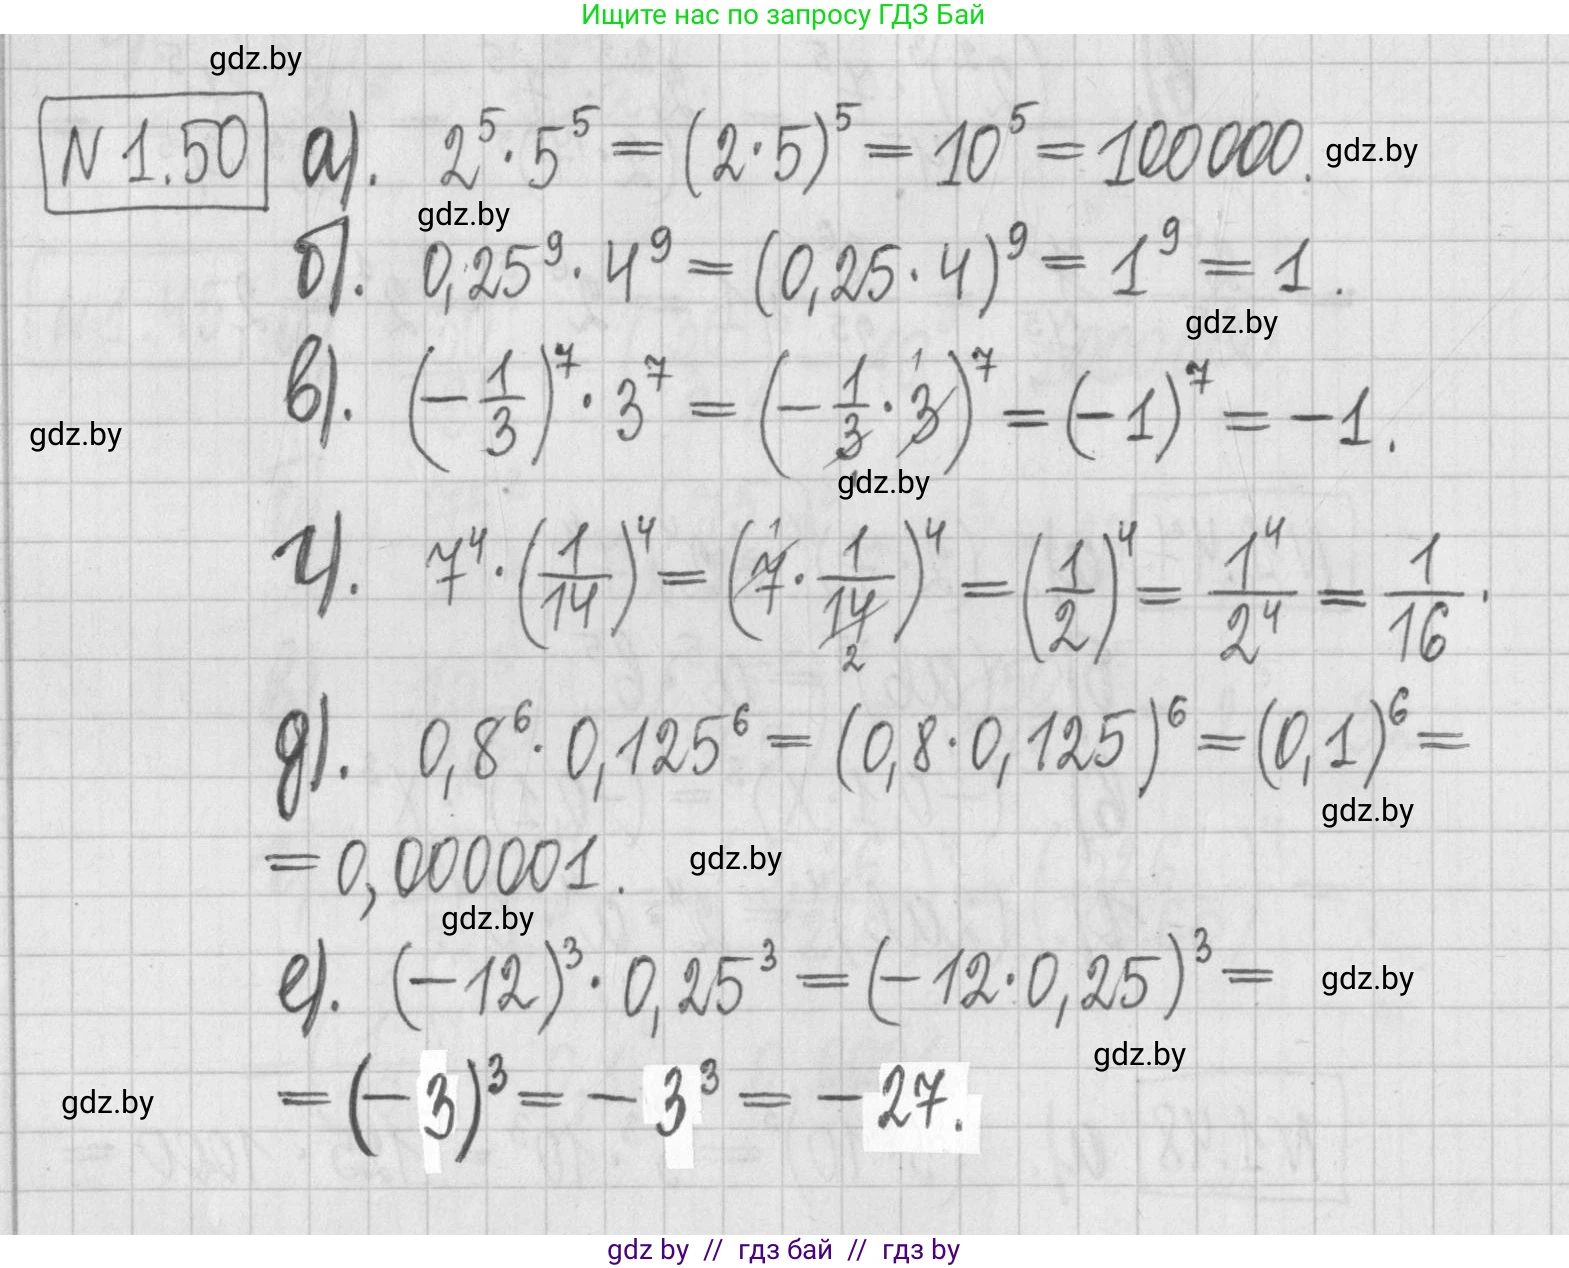 Ищите нас по запросу ГДЗ Бай
gdz.by
N 1.50 а). 2⁵·5⁵ = (2·5)⁵ = 10⁵ = 100000. gdz.by
gdz.by
б). 0,25⁹·4⁹ = (0,25·4)⁹ = 1⁹ = 1.
gdz.by
в). (-1/3)⁷·3⁷ = (-1/3·3)⁷ = (-1)⁷ = -1.
gdz.by
gdz.by
г). 7⁴·(1/14)⁴ = (7·1/14)⁴ = (1/2)⁴ = 1⁴/2⁴ = 1/16.
д). 0,8⁶·0,125⁶ = (0,8·0,125)⁶ = (0,1)⁶ =
gdz.by
= 0,000001. gdz.by
gdz.by
е). (-12)³·0,25³ = (-12·0,25)³ = gdz.by
gdz.by
gdz.by = (-3)³ = -3³ = -27.
gdz by // гдз бай // гдз by